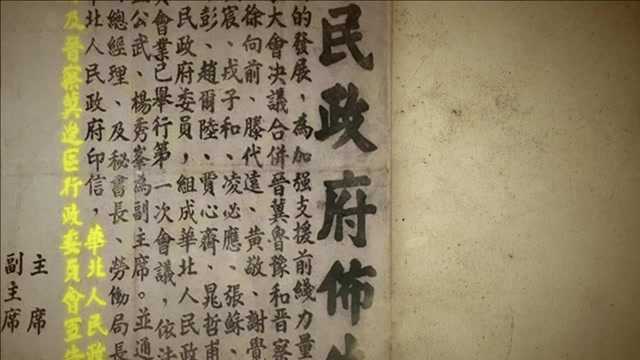 民政府佈告
的發展，為加强支援前綫力量
大會決議合併晉冀魯豫和晉察
徐向前、滕代遠、黃敬、謝覺
宸、戎子和、凌必應、張蘇、
彭、趙爾陸、賈心齋、晁哲甫
民政府委員，組成華北人民政
會業已舉行第一次會議，依法
公武、楊秀峯為副主席。並通
總經理、及秘書長、勞働局長
北人民政府印信，華北人民政
及晉察冀邊區行政委員會宣告
主席
副主席